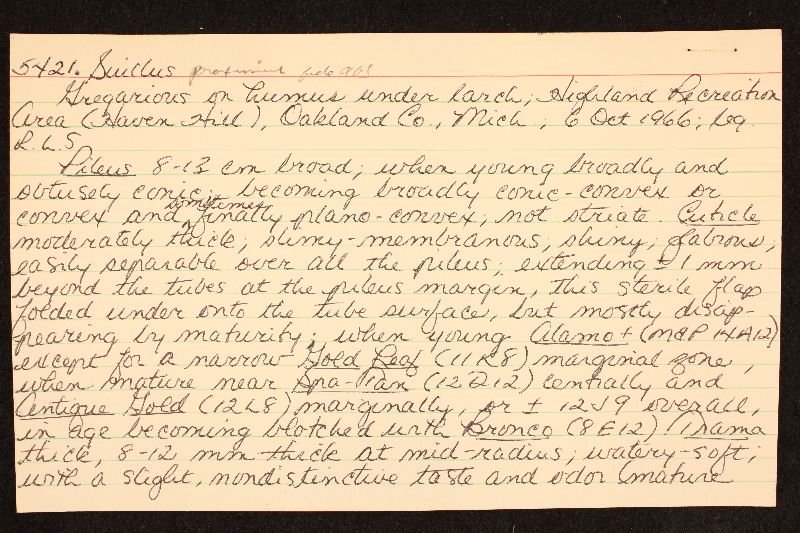 5421. Suillus proximus
Gregarious on humus under larch; Highland Recreation
Area (Haven Hill), Oakland Co., Mich.; 6 Oct 1966; leg.
R.L.S.
Pileus 8-13 cm broad; when young broadly and
obtusely conic; becoming broadly conic-convex or
convex and sometimes finally plano-convex; not striate. Cuticle
moderately thick, slimy-membranous, shiny, glabrous,
easily separable over all the pileus; extending ± 1 mm
beyond the tubes at the pileus margin, this sterile flap
folded under onto the tube surface, but mostly disap-
pearing by maturity; when young Alamo + (M&P 14A12)
except for a narrow Gold Leaf (11K8) marginal zone,
when mature near Spa-Tan (12D12) centrally and
Antique Gold (12L8) marginally, or ± 12J9 overall,
in age becoming blotched with Bronco (8E12) Trama
thick, 8-12 mm thick at mid-radius; watery-soft;
with a slight, nondistinctive taste and odor (mature